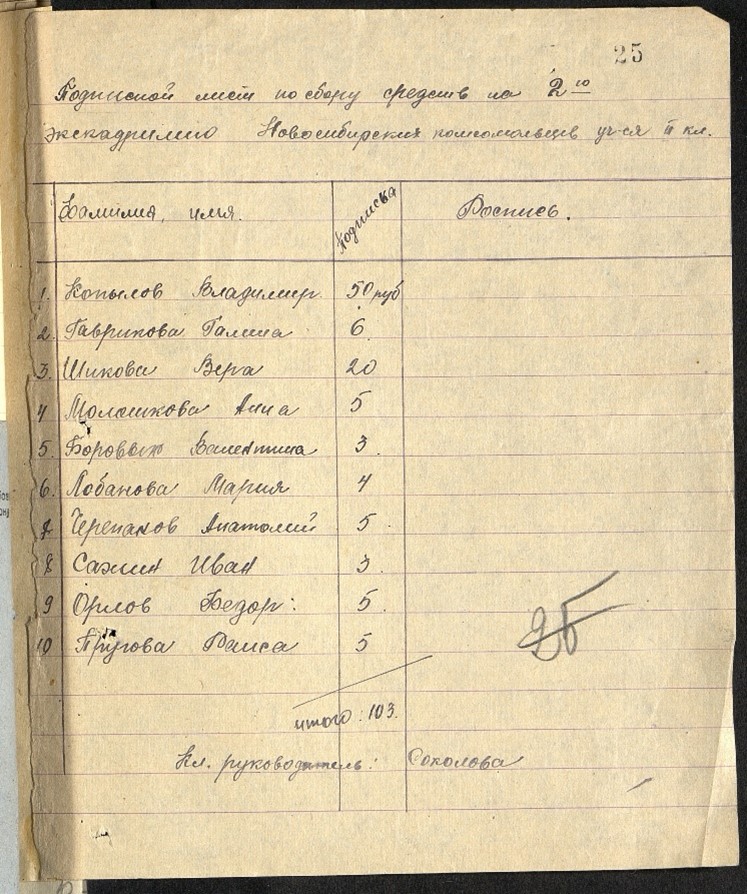 25
Подписной лист по сбору средств на 2ую
эскадрилию Новосибирских комсомольцев уч-ся II кл.
Фамилия, имя. Подписка Роспись.
1. Копылов Владимир. 50 руб
2. Гаврикова Галина 6
3. Шикова Вера 20
4 Молошкова Анна 5
5. Боровых Валентина 3
6. Лобанова Мария 4
7. Черепанов Анатолий 5
8 Сажин Иван 3
9 Орлов Федор: 5
10 Пругова Раиса 5
итого: 103.
Кл. руководитель: Соколова